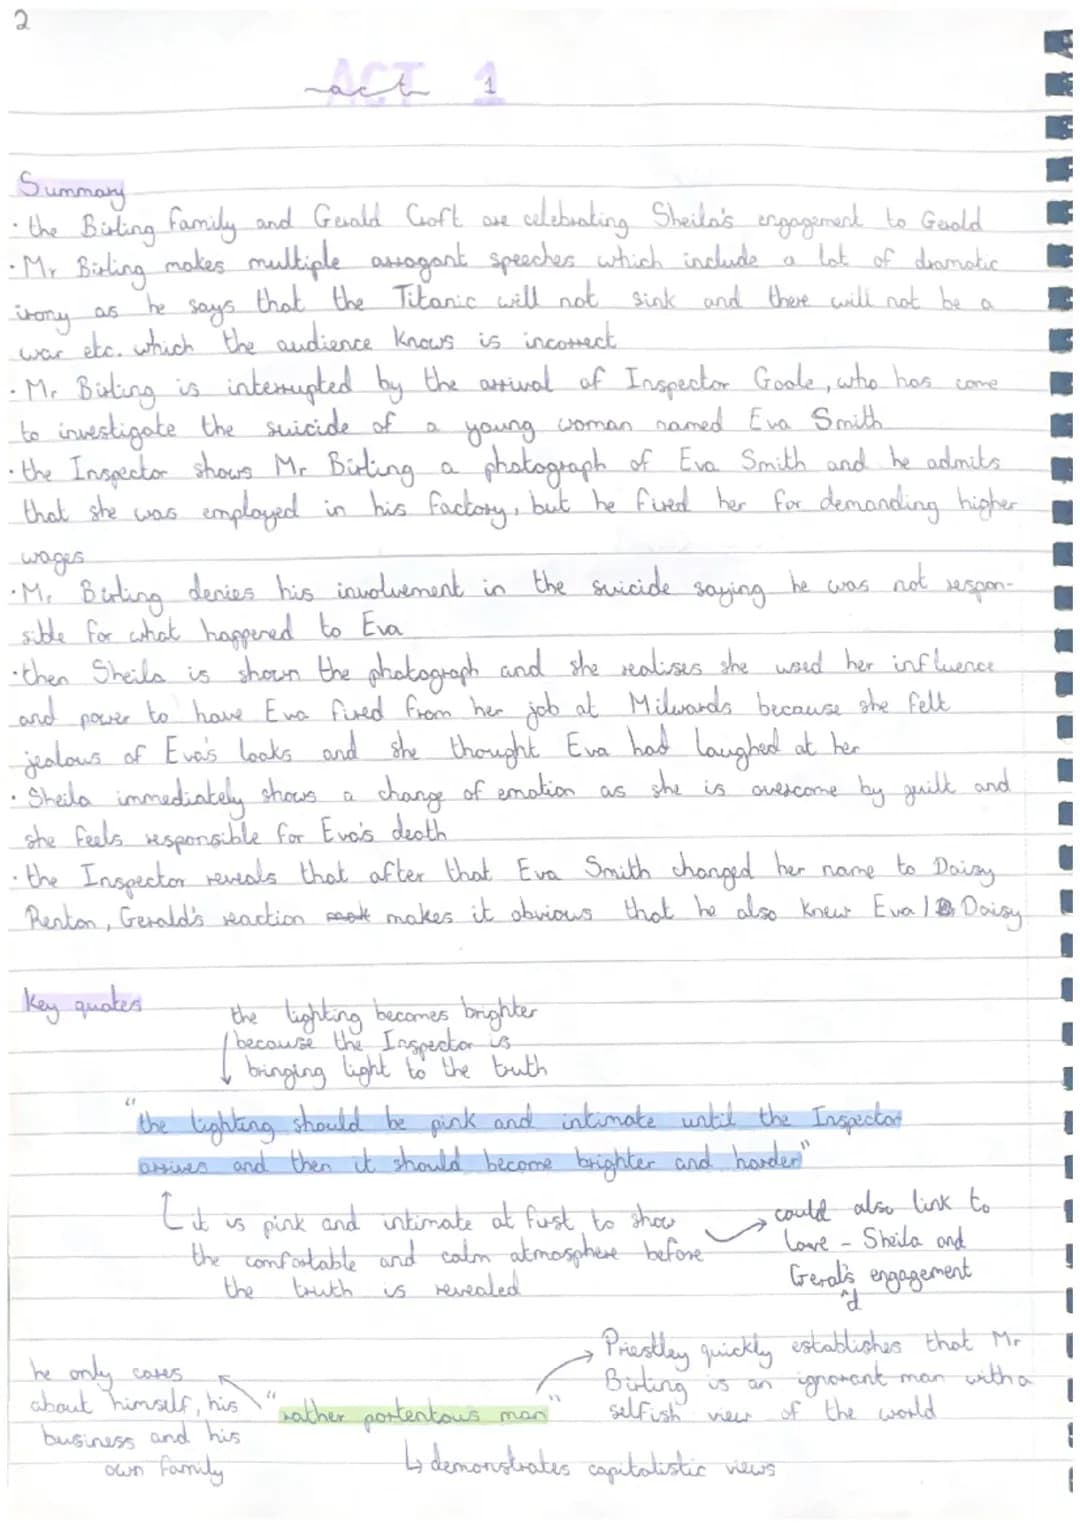 2
ACT 1
act
Summary
· the Birling family and Gerald Croft are celebrating Sheila's engagement to Gerald
· Mr Birling makes multiple arrogant speeches which include a lot of dramatic
irony as he says that the Titanic will not sink and there will not be a
war etc. which the audience knows is incorrect
· Mr Birling is interrupted by the arrival of Inspector Goole, who has come
to investigate the suicide of a young woman named Eva Smith
· the Inspector shows Mr Birling a photograph of Eva Smith and he admits
that she was employed in his factory, but he fired her for demanding higher
wages
· Mr Birling denies his involvement in the suicide saying he was not respon-
sible for what happened to Eva
· then Sheila is shown the photograph and she realises she used her influence
and power to have Eva fired from her job at Milwards because she felt
jealous of Eva's looks and she thought Eva had laughed at her
· Sheila immediately shows a change of emotion as she is overcome by guilt and
she feels responsible for Eva's death
· the Inspector reveals that after that Eva Smith changed her name to Daisy
Renton, Gerald's reaction makes it obvious that he also knew Eva / Daisy
Key quotes
the lighting becomes brighter
because the Inspector is
bringing light to the truth
"the lighting should be pink and intimate until the Inspector
arrives and then it should become brighter and harder"
it is pink and intimate at first to show
the comfortable and calm atmosphere before
the truth is revealed
could also link to
love - Sheila and
Geral's engagement
^d
he only cares
about himself, his
business and his
own family
"rather portentous man"
Priestley quickly establishes that Mr
Birling is an ignorant man with a
selfish view of the world
↳ demonstrates capitalistic views